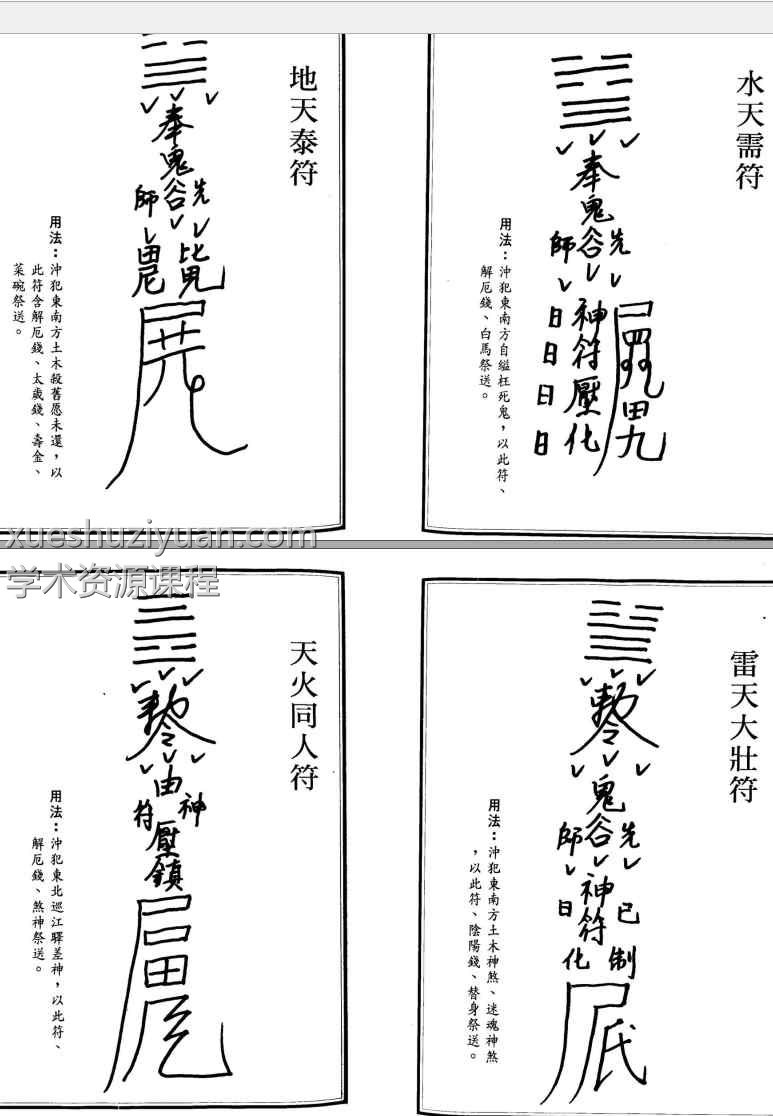 水天需符
奉鬼谷先師
神符壓化
日日日日
用法：沖犯東南方自縊枉死鬼，以此符、
解厄錢、白馬祭送。
地天泰符
奉鬼谷先師
用法：沖犯東南方土木殺舊愿未還，以
此符含解厄錢、太歲錢、壽金、
菜碗祭送。
xueshuziyuan.com
学术资源课程
雷天大壯符
敕令
鬼谷先師
神符
日 已
化 制
用法：沖犯東南方土木神煞、迷魂神煞
，以此符、陰陽錢、替身祭送。
天火同人符
敕令
由神符
壓鎮
用法：沖犯東北巡江驛差神，以此符、
解厄錢、煞神祭送。